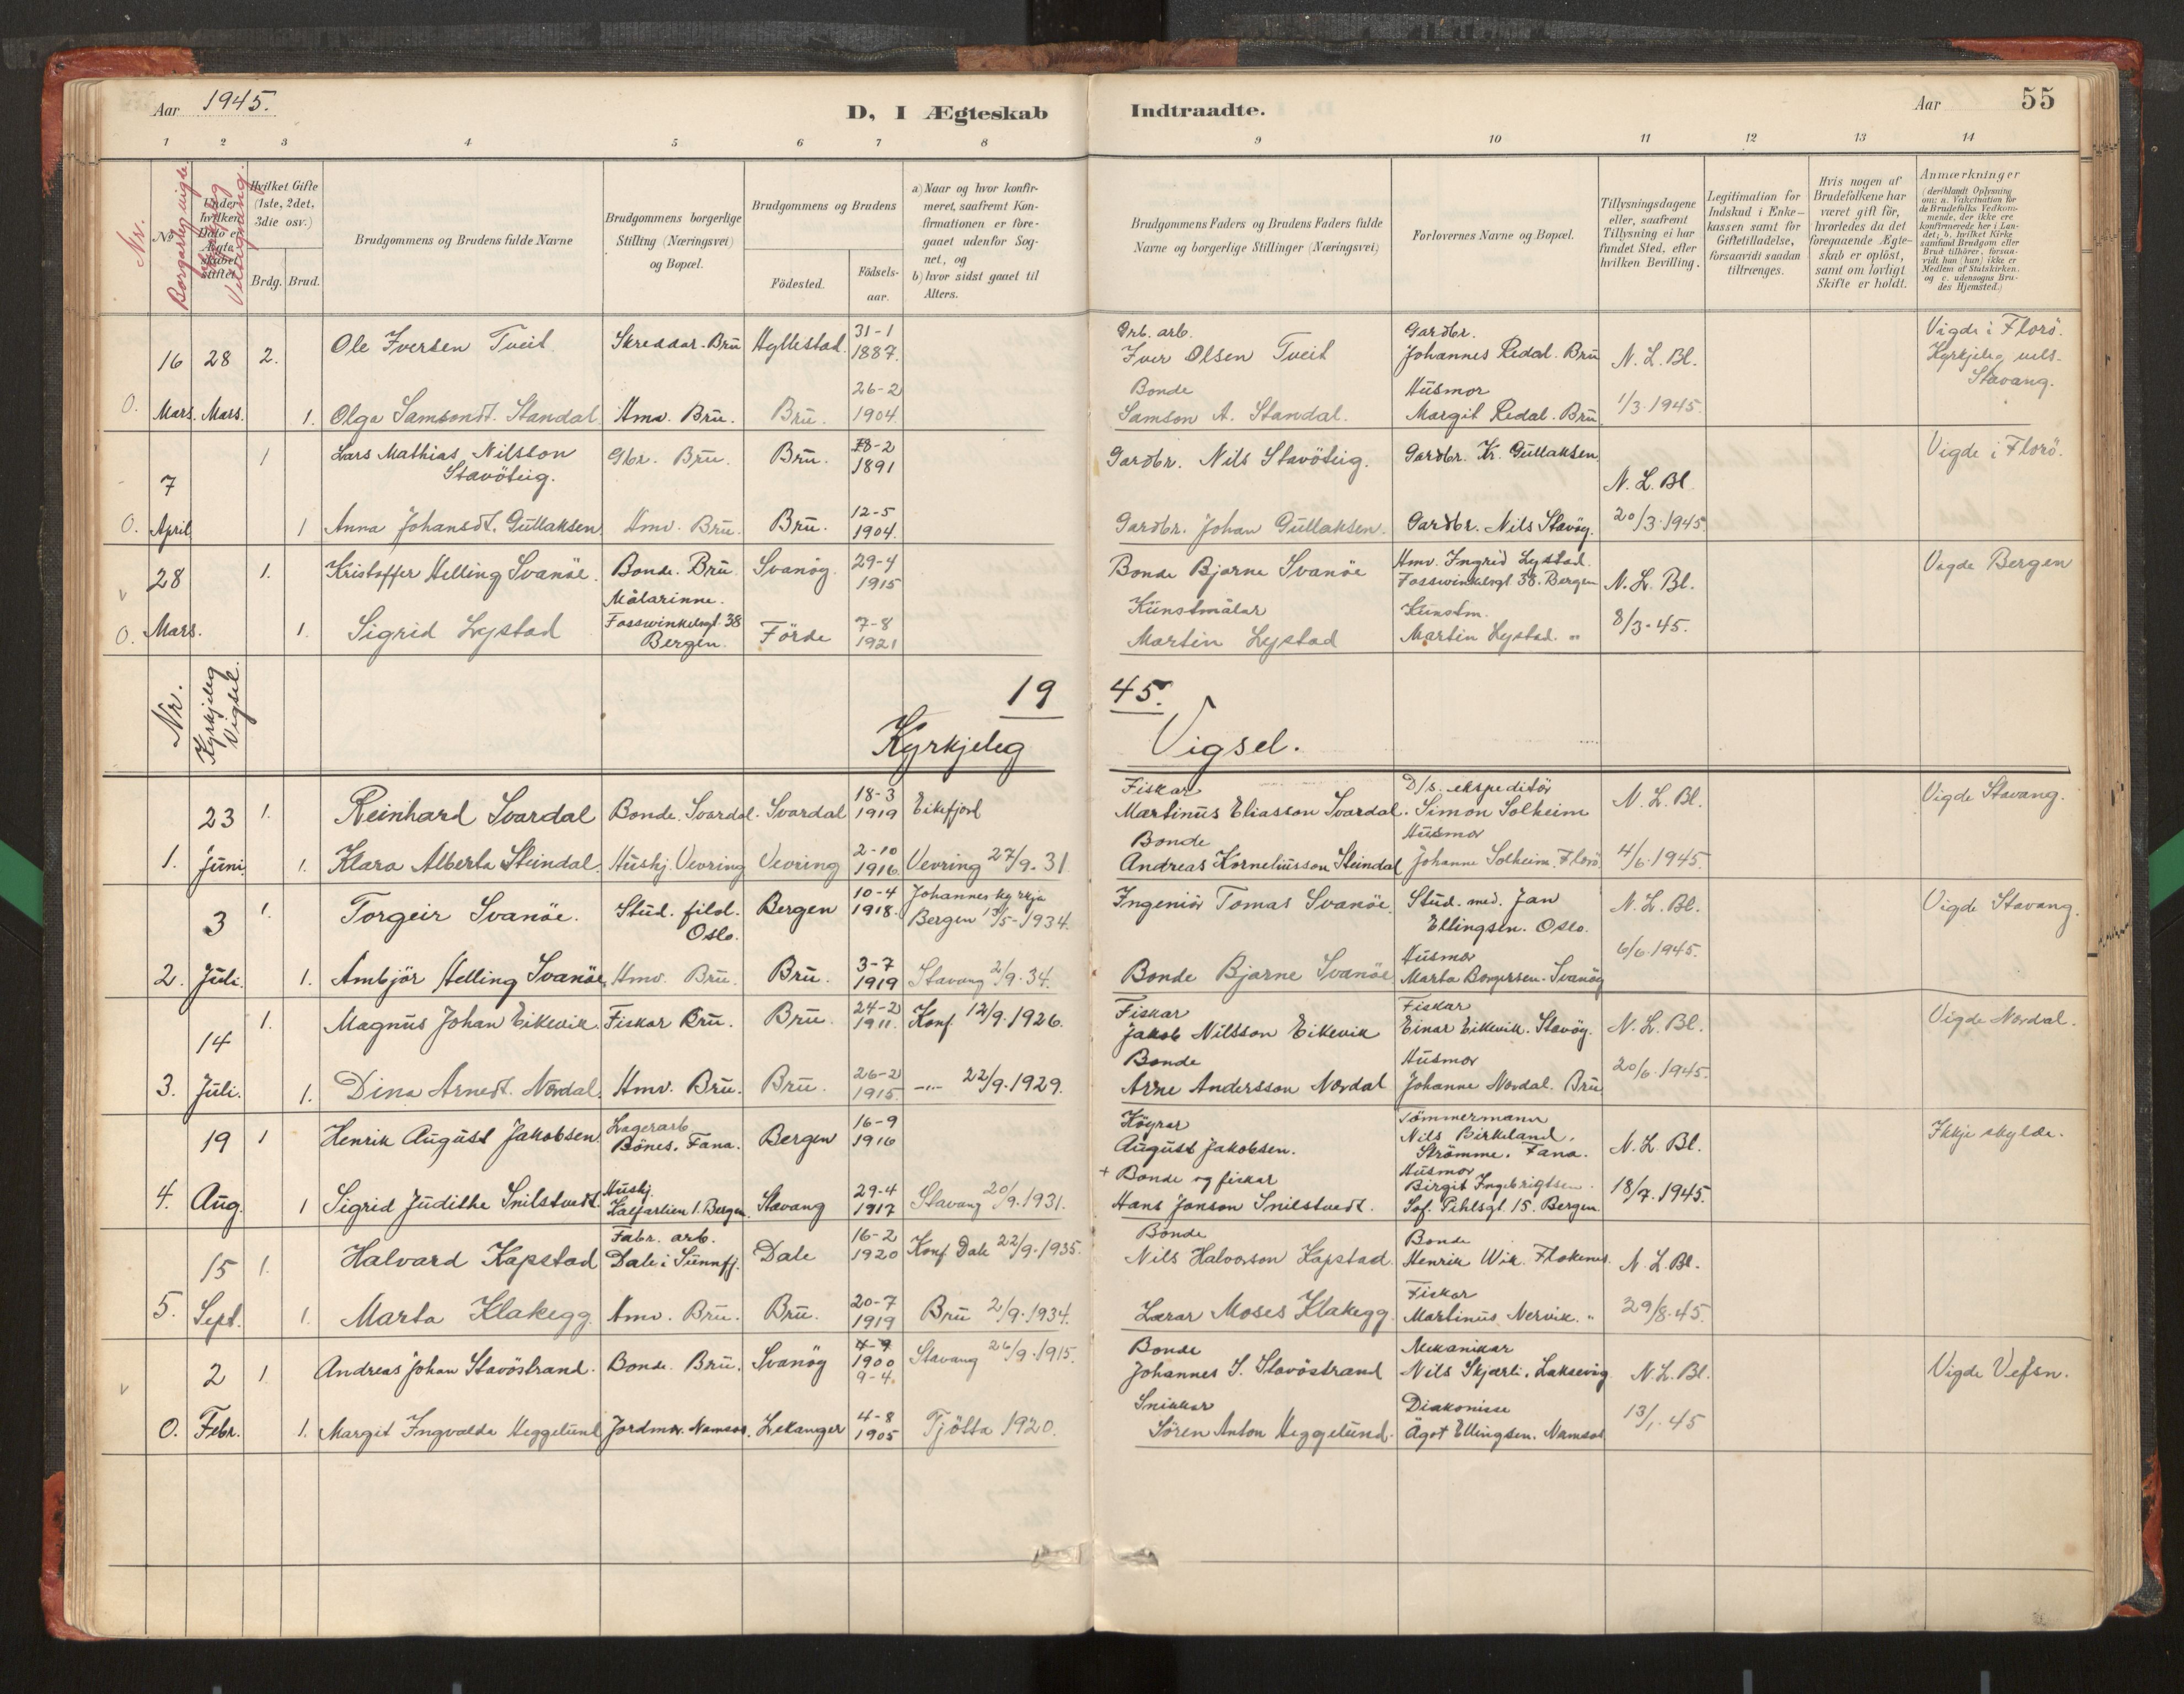 Aar 1945.
D, I Ægteskab Indtraadte.
Aar 55
1 2 3 4 5 6 7 8 9 10 11 12 13 14
Nr.
Borgarleg vigde
Nº
Under hvilken Dato er Ægteskabet stiftet.
Hvilket Gifte (1ste, 2det, 3die osv.)
Brdg. Brud.
Brudgommens og Brudens fulde Navne
Brudgommens borgerlige Stilling (Næringsvei) og Bopæl.
Brudgommens og Brudens
Födested.
Födsels-aar.
a) Naar og hvor konfirmeret, saafremt Konfirmationen er foregaaet udenfor Sognet, og
b) hvor sidst gaaet til Alters.
Brudgommens Faders og Brudens Faders fulde Navne og borgerlige Stillinger (Næringsvei)
Forlovernes Navne og Bopæl.
Tillysningsdagene eller, saafremt Tillysning ei har fundet Sted, efter hvilken Bevilling.
Legitimation for Indskud i Enkekassen samt for Giftetilladelse, forsaavidt saadan tiltrænges.
Hvis nogen af Brudefolkene har været gift för, hvorledes da det foregaaende Ægteskab er oplöst, samt om lovligt Skifte er holdt.
Anmærkninger
(deriblandt Oplysning om: a. Vakcination for de Brudefolks Vedkommende, der ikke ere konfirmerede her i Landet; b. hvilket Kirkesamfund Brudgom eller Brud tilhörer, forsaavidt han (hun) ikke er Medlem af Statskirken. og c. udensogns Brudes Hjemsted.)
16 28 2. Ole Iversen Tveit Skreddar. Bru Hyllestad. 31-1 1887. Grb. arb. Iver Olsen Tveit Gardbr. Johannes Redal. Bru N. L. Bl. Vigde i Florö. Kyrkjeleg vels. Stavang.
0. Mars. Mars. 1. Olga Samsondt. Standal Hmv. Bru. Bru. 26-2 1904. Bonde Samson A. Standal. Husmor Margit Redal. Bru 1/3.1945.
7 1 Lars Mathias Nilsson Stavöteig. Gbr. Bru. Bru. 18-2 1891 Gardbr. Nils Stavöteig. Gardbr. Kr. Gullaksen N. L. Bl. Vigde i Florö.
0. April 1 Anna Johansdt. Gullaksen Hmv. Bru. Bru. 12-5 1904. Gardbr. Johan Gullaksen. Gardbr. Nils Stavög. 20/3.1945
28 1. Kristoffer Helling Svanöe. Bonde. Bru. Svanög. 29-4 1915 Bonde Bjarne Svanöe Hmv. Ingrid Lystad. Fosswinkelsgt. 38. Bergen N. L. Bl. Vigde Bergen
0. Mars. 1. Sigrid Lystad Målarinne. Fosswinkelsgt. 38 Bergen. Förde 7-8 1921 Kunstmålar Martin Lystad Kunstm. Martin Lystad. " 8/3-45.
Nr. Kyrkjeleg Vigsel.
19 45.
Kyrkjeleg Vigsel.
23 1. Reinhard Svardal Bonde. Svardal. Svardal 18-3 1919 Eikefjord Fiskar Martinus Eliasson Svardal. D/s. ekspeditör Simon Solheim N. L. Bl. Vigde Stavang.
1. Juni. 1. Klara Alberta Steindal. Hushj. Vevring Vevring 2-10 1916. Vevring 27/9-31 Bonde Andreas Korneliusson Steindal Husmor Johanne Solheim. Florö 4/6.1945.
3 1. Torgeir Svanöe. Stud. filol. Oslo. Bergen 10-4 1918. Johanneskyrkja Bergen 13/5-1934. Ingeniör Tomas Svanöe. Stud. med. Jan Ellingsen. Oslo. N. L. Bl. Vigde Stavang.
2. Juli. 1. Ambjör Helling Svanöe Hmv. Bru. Bru. 3-7 1919 Stavang 2/9-34. Bonde Bjarne Svanöe Husmor Marta Borgersen. Svanög 6/6.1945.
14 1. Magnus Johan Eikevik. Fiskar Bru. Bru. 24-2 1911. Konf. 12/9.1926. Fiskar Jakob Nilsson Eikevik Fiskar Einar Eikevik. Stavög. N. L. Bl. Vigde Nordal.
3. Juli. 1. Dina Arnedt. Nordal. Hmv. Bru. Bru. 26-2 1915. -"- 22/9.1929. Bonde Arne Andersson Nordal Husmor Johanne Nordal. Bru 20/6.1945.
19 1 Henrik August Jakobsen. Lagerarb. Bönes. Fana. Bergen 16-9 1916 Köyrar August Jakobsen. Tömmermann Nils Birkeland. Strömme. Fana. N. L. Bl. Ikkje skylde.
4. Aug. 1 Sigrid Judithe Snilstvedt. Hushj. Kalfarlien 1. Bergen. Stavang 29-4 1917 Stavang 20/9.1931. + Bonde og fiskar Hans Janson Snilstvedt. Husmor Birgit Ingebrigtsen. Sof. Pihlsgt. 15. Bergen 18/7.1945.
15 1. Halvard Kapstad Fabr. arb. Dale i Sunnfj. Dale 16-2 1920 Konf. Dale 22/9-1935. Bonde Nils Halvorson Kapstad. Bonde Henrik Wik. Flokenes. N. L. Bl.
5. Sept. 1. Marta Klakegg. Hmv. Bru. Bru. 20-7 1919 Bru 2/9.1934. Lærar Moses Klakegg. Fiskar Martinus Nervik. " 29/8.45.
2 1. Andreas Johan Stavöstrand. Bonde. Bru. Svanög 4-9 1900 9-4. Stavang 26/9.1915. Bonde Johannes S. Stavöstrand Mekanikar Nils Skjærli. Laksevåg. N. L. Bl. Vigde Vefsn.
0. Febr. 1. Margit Ingvalda Heggelund Jordmor. Namsos. Lekanger 4-8 1905 Tjötta 1920. Snikkar Sören Anton Heggelund. Diakonisse Ågot Ellingsen. Namsos 13/1.45